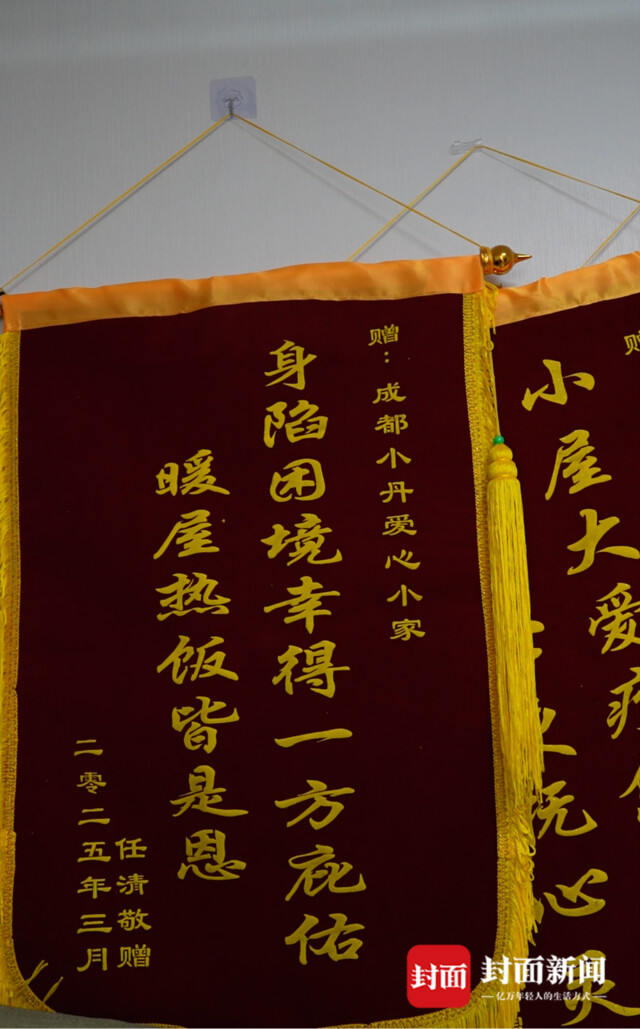 赠：成都小丹爱心小家
身陷困境幸得一方庇佑
暖屋热饭皆是恩
任清敬赠
二零二五年三月
赠
小屋大爱疗伤
抚心灵
封面
封面新闻
亿万年轻人的生活方式